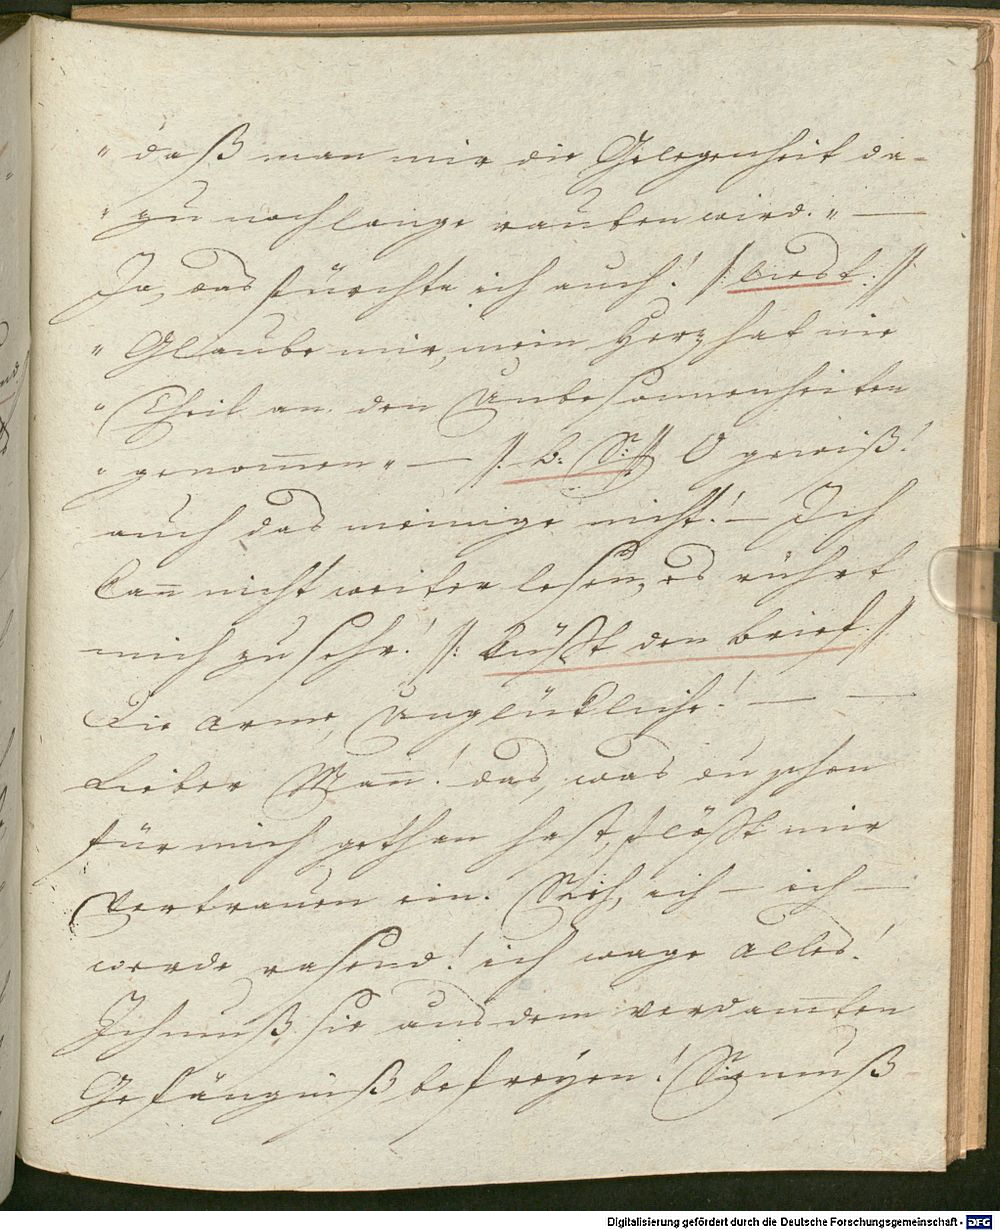 " daß man mir die Gelegenheit da-
" zu noch lange rauben wird. " —
Ja, das fürchte ich auch! /: liest. :/
" Glaube mir, mein Herz hat nie
" Theil an den Unbesonnenheiten
" genom̄en " — /: b: S: :/ O gewiß!
auch das meinige nicht! — Ich
kan̄ nicht weiter lesen, es rührt
mich zu sehr! /: küßt den brief. :/
Die arme, Unglückliche! — —
Lieber Man̄! das, was du schon
für mich gethan hast, flößt mir
Vertrauen ein. Sieh, ich — ich —
werde rasend! ich wage alles!
Ich muß sie aus dem verdam̄ten
Gefängniß befreyen! Sie muß
Digitalisierung gefördert durch die Deutsche Forschungsgemeinschaft - DFG